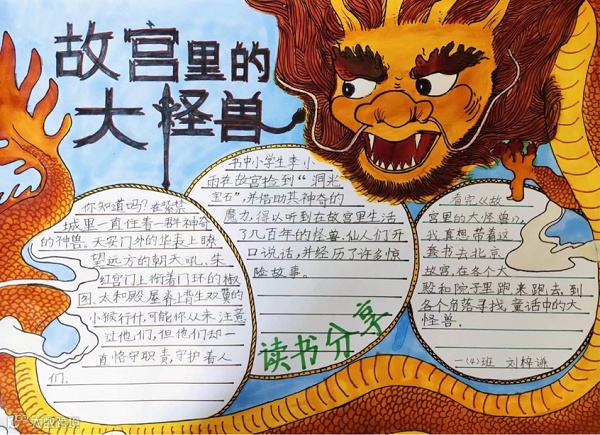 故宫里的
大怪兽
你知道吗?在紫禁
城里一直住着一群神奇
的神兽。天安门外的华表上眺
望远方的朝天吼、朱
红宫门上衔着门环的椒
图、太和殿屋脊上背生双翼的
小猴行什,可能你从未注意
过他们,但他们却一
直恪守职责,守护着人
们。
书中小学生李小
雨在故宫捡到“洞光
宝石”,并借助其神奇的
魔力,得以听到在故宫里生活
了几百年的怪兽、仙人们开
口说话,并经历了许多惊
险故事。
读书分享
看完《故
宫里的大怪兽》,
我真想带着这
套书去北京
故宫,在各个大
殿和院子里跑来跑去,到
各个角落寻找,童话中的大
怪兽。
一(4)班 刘梓谦